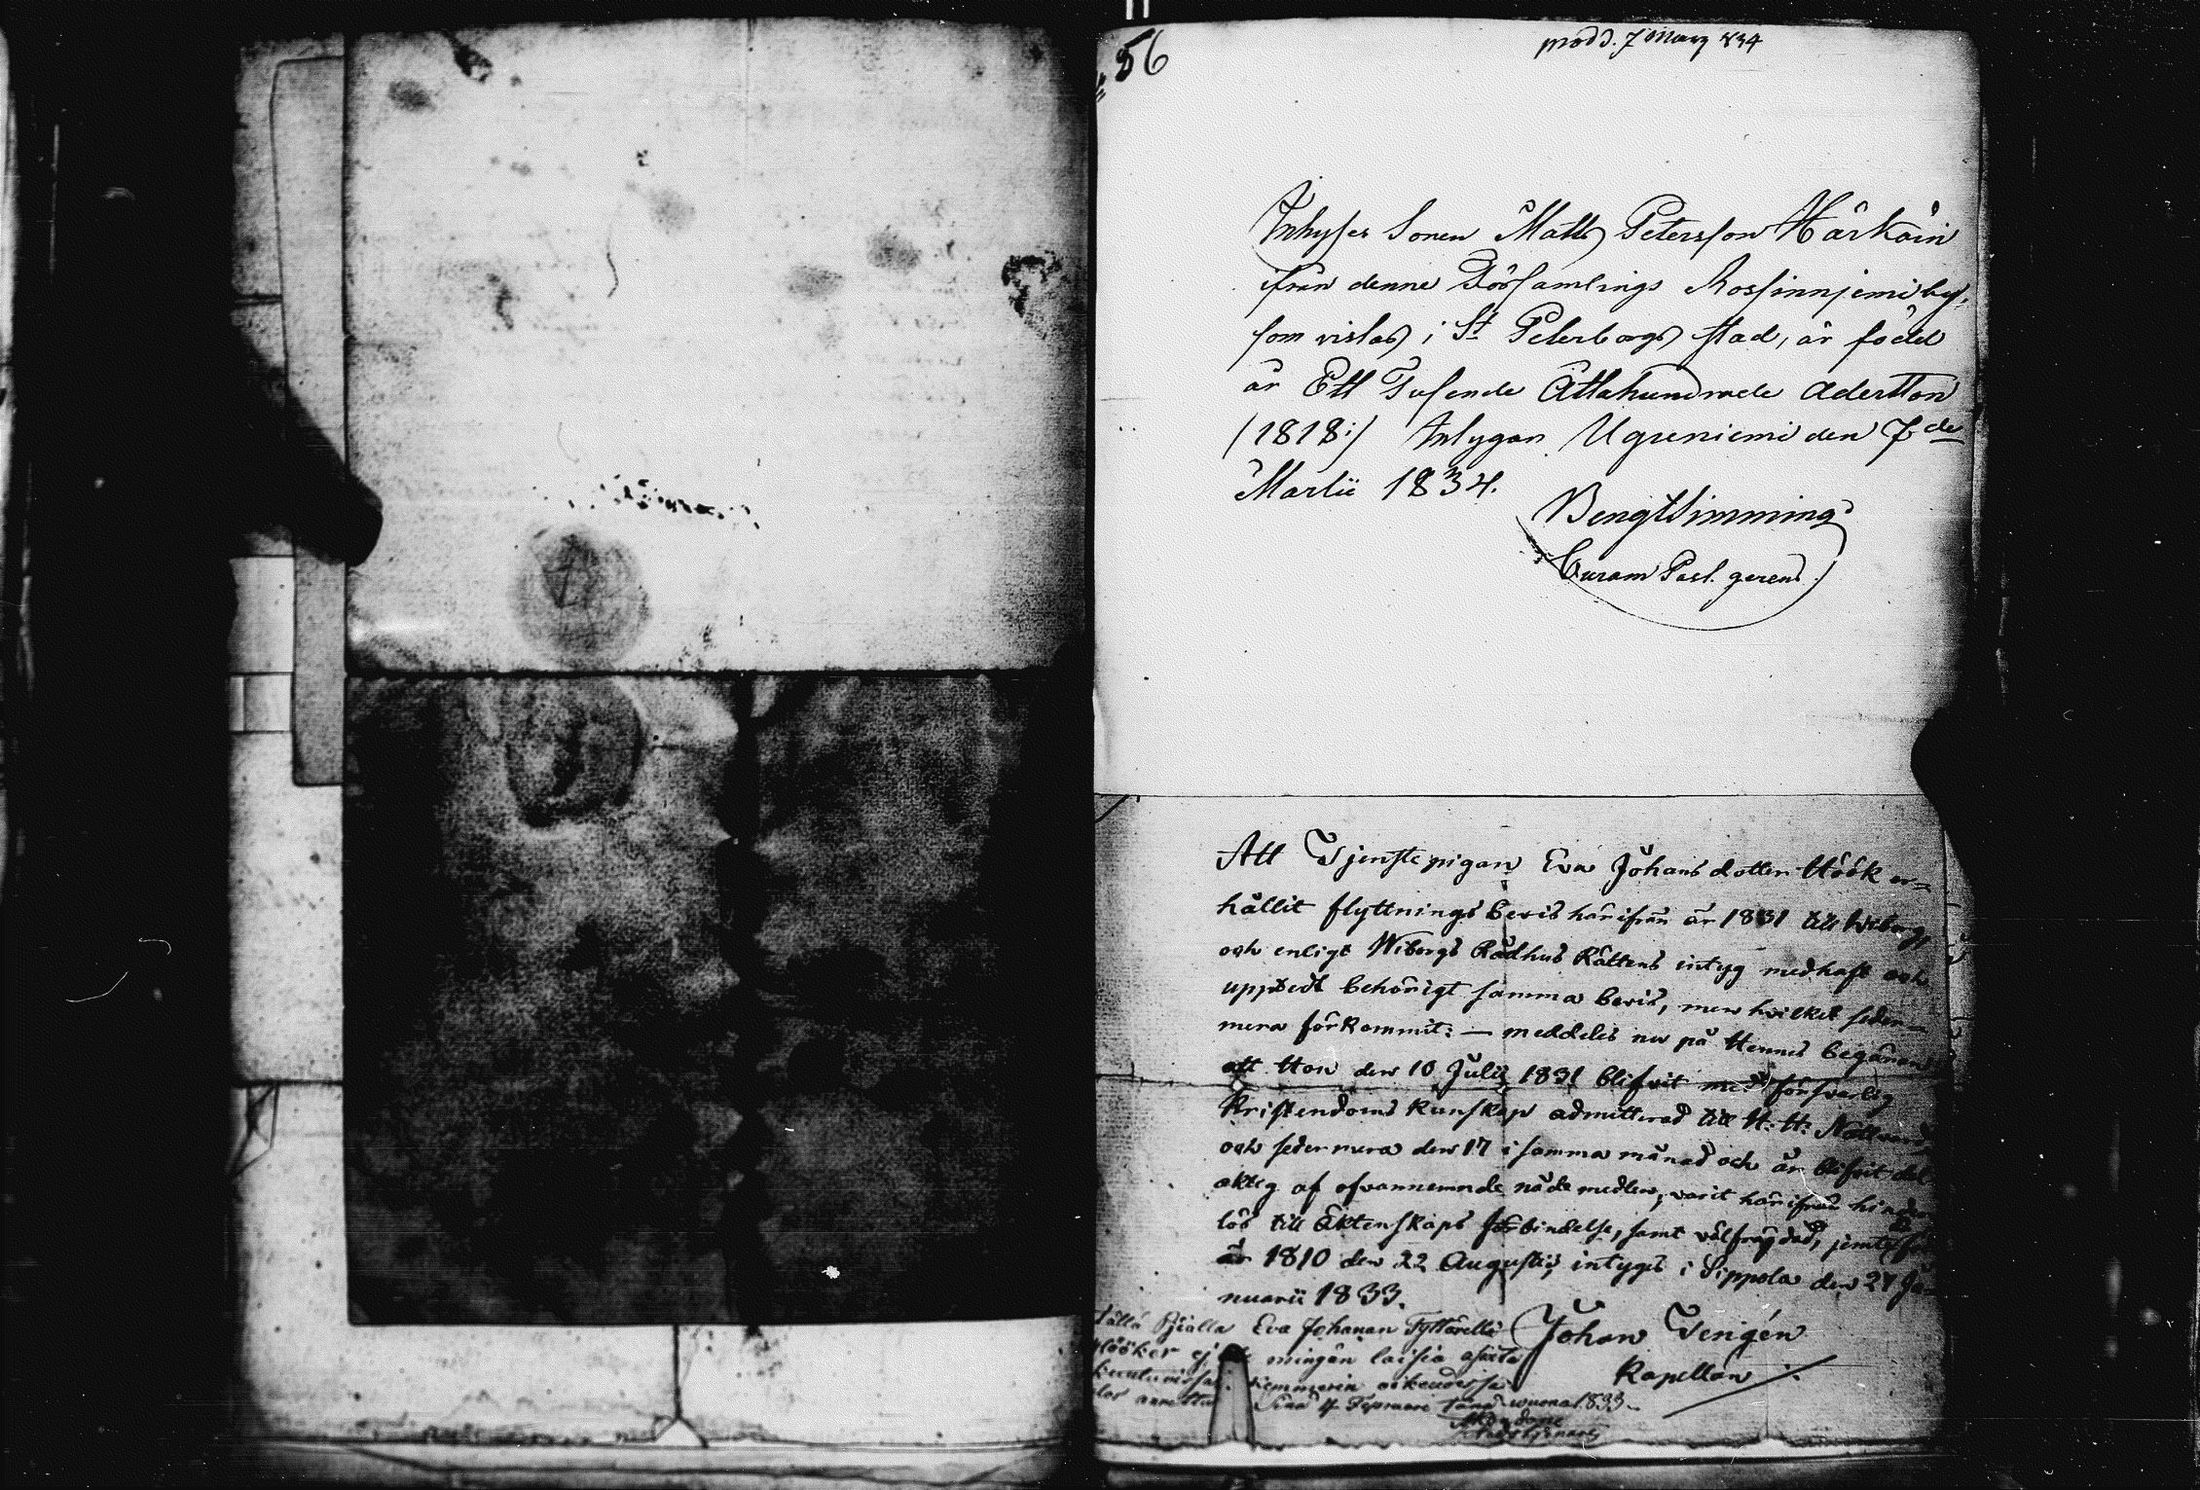 56
prod d. 7 Mars 834
Inhyses Sonen Matts Petersson Härkäin
ifrån denne Församlings Rossinnjemi by,
som vistas i St Peterborgs stad, är född
år Ett Tusende Åttahundrade Adertton
(1818:) Intygan Uguniemi den 7de
Martii 1834.
Bengt Simming
Curam Past. gerens.
Att Tjenstepigan Eva Johansdotter Höök er=
hållit flyttnings bevis härifrån år 1831 till Wiborg,
och enligt Wiborgs Rådhus Rättens intyg medhaft och
uppvedt behörigt samma bevis, men hvilket seder-
mera förkommit: — meddeles nu på Hennes begäran
att Hon den 10 Julii 1831 blifvit med försvarlig
Kristendoms kunskap admitterad till H. H. Nattvard
och sedermera den 17 i samma månad och år blifvit del
aktig af ofvannemnde nådemedlen, varit härifrån hinder
lös till Äktenskaps förbindelse, samt välfrägdad, jemte
år 1810 den 22 Augustii, intygas i Sippola den 27 Ja-
nuarii 1833.
Johan
Kapellan
Eva Johanan Tyttärellä
mingän laisia
Sinä 4 Februari tänä wuona 1833.